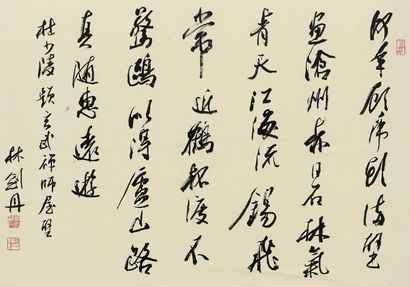 何年顧虎頭滿壁
畫滄州赤日石林氣
青天江海流錫飛
常近鶴杯渡不
驚鷗似得廬山路
真隨惠遠遊
杜少陵題玄武禪師屋壁
林劍丹